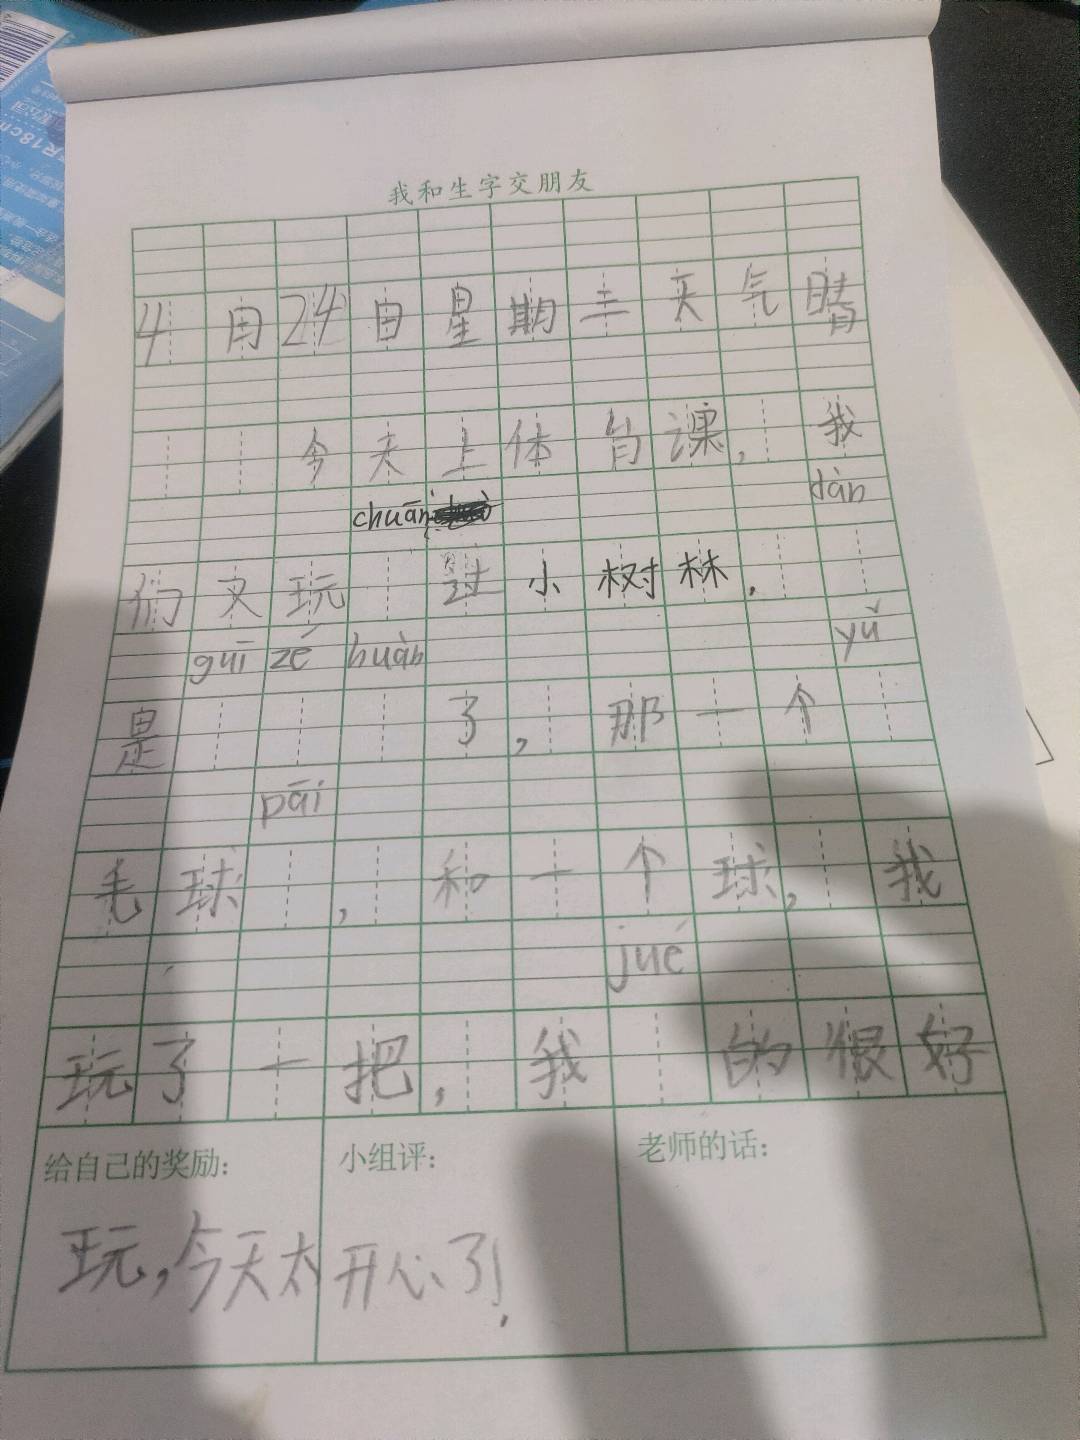 我和生字交朋友
4月24日星期三天气晴
今天上体育课，我
chuān dàn
们又玩过小树林．
guī zé huàn yǔ
是了，那一个
pāi
毛球，和一个球，我
jué
玩了一把，我的很好
给自己的奖励： 小组评： 老师的话：
玩，今天太开心了！